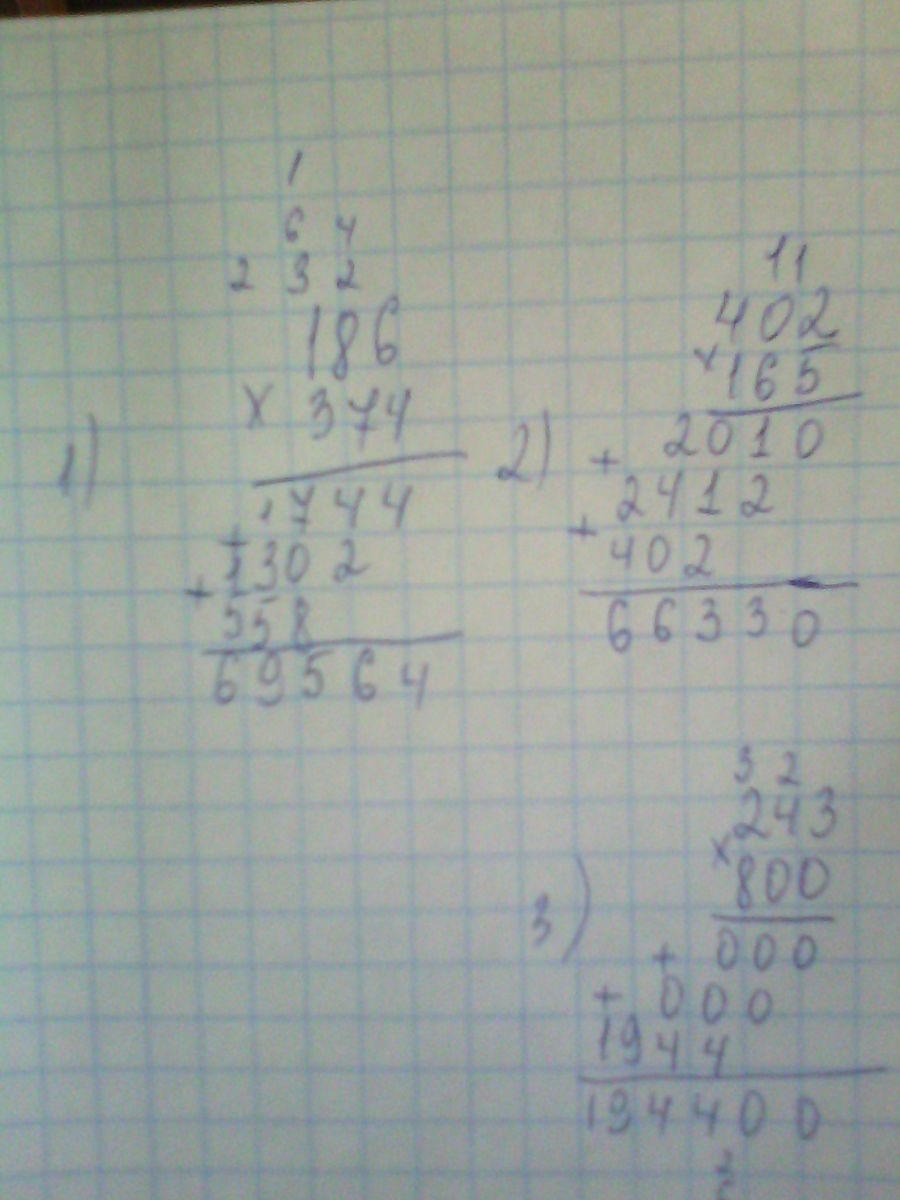 1)
1
6 4
2 3 2
186
× 374
1744
+ 1302
+ 558
69564
2)
11
402
× 165
2010
+ 2412
+ 402
66330
3)
3 2
243
× 800
000
+ 000
+ 1944
194400